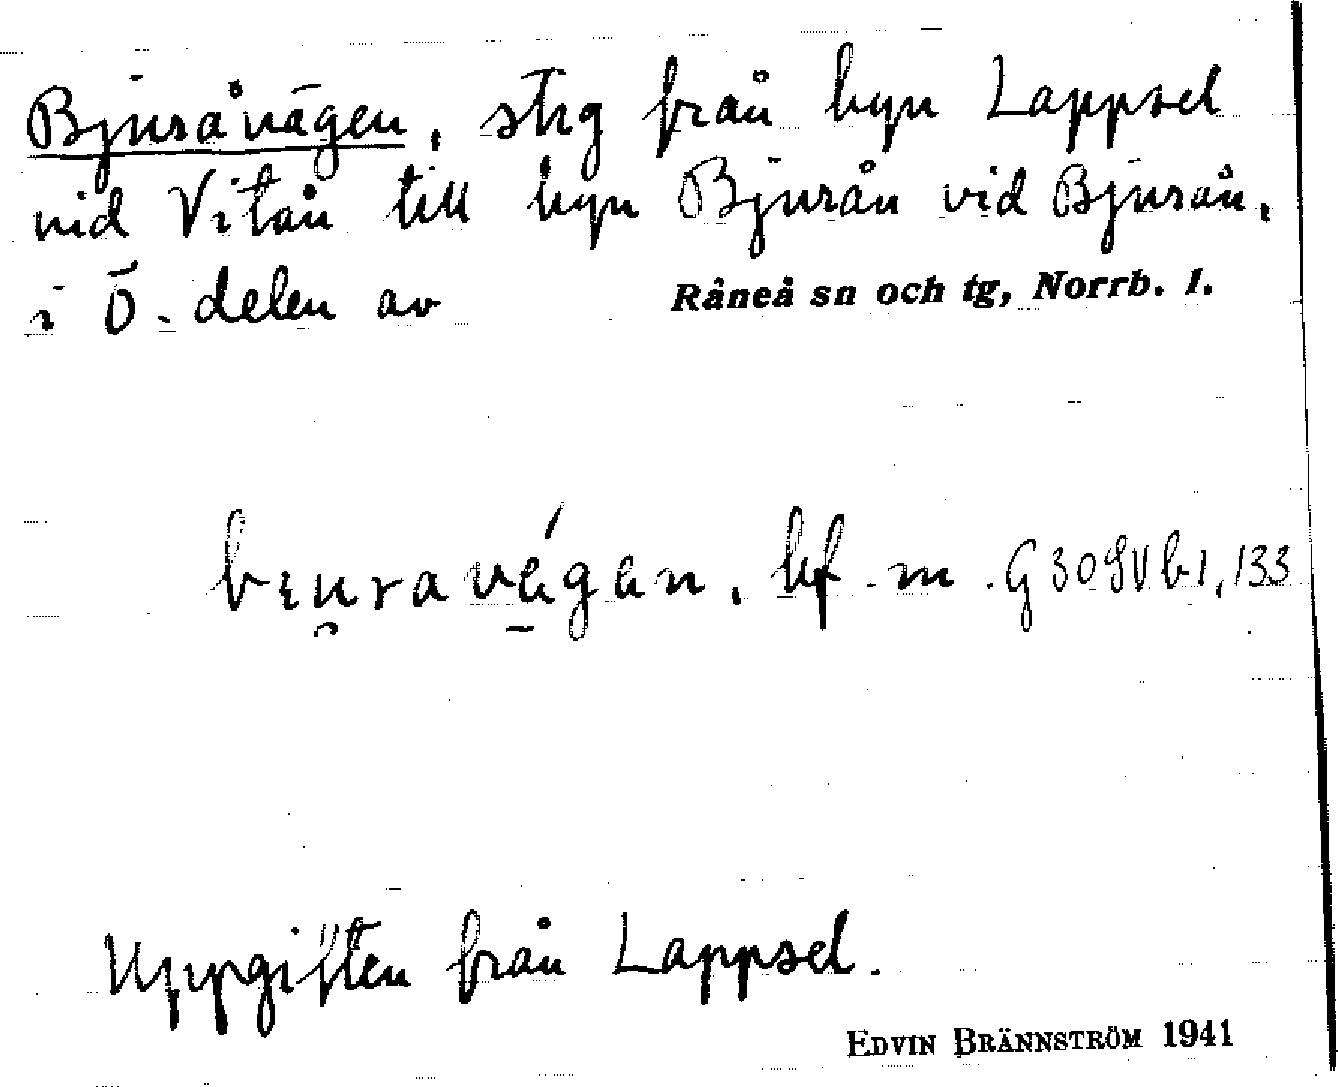 Bjuråvägen, stig från byn Lappsel
vid Vitån till byn Bjurån vid Bjurån,
i Ö. delen av Råneå sn och tg, Norrb. l.
bf. m. G 30 SV b1, 133
Uppgiften från Lappsel.
EDVIN BRÄNNSTRÖM 1941